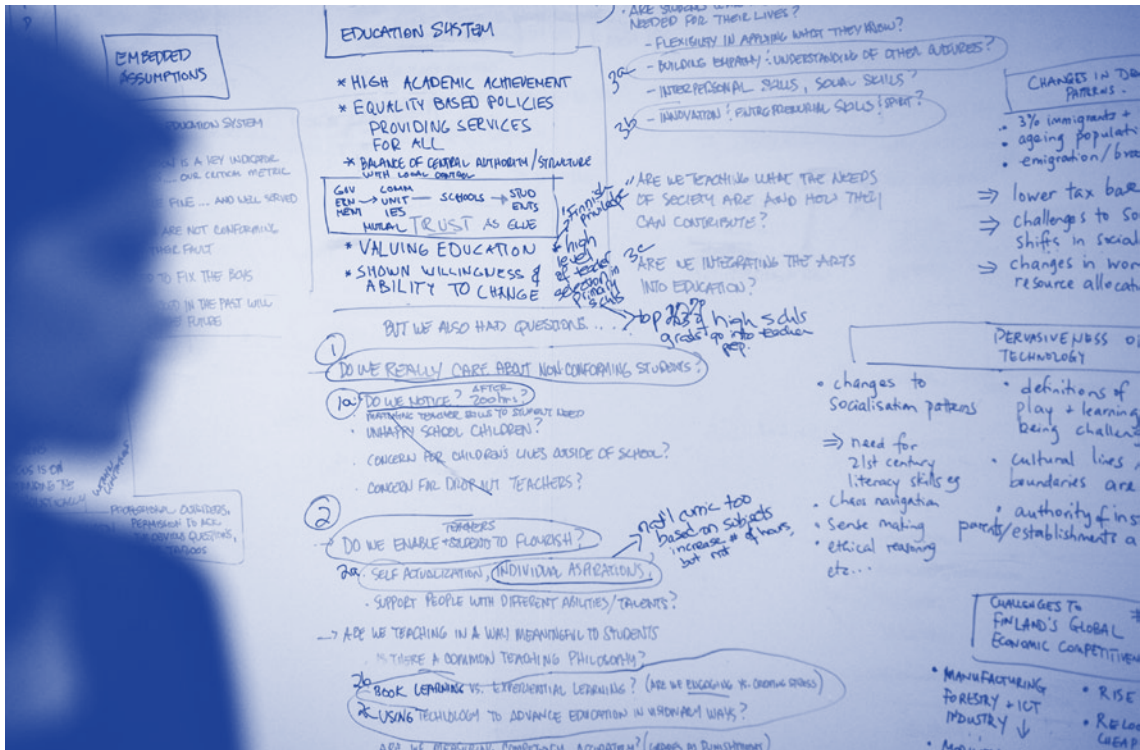 EMBEDDED
ASSUMPTIONS
EDUCATION SYSTEM
IS A KEY INDICATOR
... OUR CRITICAL METRIC
FINE ... AND WELL SERVED
ARE NOT CONFORMING
FAULT
TO FIX THE BOYS
IN THE PAST WILL
FUTURE
IS ON
PROFESSIONAL OUTSIDERS,
PERMISSION TO ASK
QUESTIONS,
EDUCATION SYSTEM
* HIGH ACADEMIC ACHIEVEMENT
* EQUALITY BASED POLICIES
PROVIDING SERVICES
FOR ALL
* BALANCE OF CENTRAL AUTHORITY/STRUCTURE
WITH LOCAL CONTROL
GOV
ERN
MENT → COMM
UNIT
IES — SCHOOLS → STUD
ENTS
MUTUAL TRUST AS GLUE
* VALUING EDUCATION
* SHOWN WILLINGNESS &
ABILITY TO CHANGE
"Finnish
privilege"
* high
level
of teacher
selection in
primary
schls
top
high schls
grads go into teacher
prep.
BUT WE ALSO HAD QUESTIONS....
1
DO WE REALLY CARE ABOUT NON CONFORMING STUDENTS?
1a. DO WE NOTICE? AFTER
TEACHER SKILLS TO STUDENT NEED
· UNHAPPY SCHOOL CHILDREN?
· CONCERN FOR CHILDREN'S LIVES OUTSIDE OF SCHOOL?
· CONCERN FOR DROP OUT TEACHERS?
2
TEACHERS
→ DO WE ENABLE + STUDENTS TO FLOURISH?
2a. SELF ACTUALIZATION, INDIVIDUAL ASPIRATIONS,
nat'l curric too
based on subjects
increase # of hours,
but not
· SUPPORT PEOPLE WITH DIFFERENT ABILITIES/TALENTS?
→ ARE WE TEACHING IN A WAY MEANINGFUL TO STUDENTS
IS THERE A COMMON TEACHING PHILOSOPHY?
2b BOOK LEARNING VS. EXPERIENTIAL LEARNING? (ARE WE ENGAGING VS. CREATING STRESS)
2c USING TECHNOLOGY TO ADVANCE EDUCATION IN VISIONARY WAYS?
ARE WE MEASURING COMPETENCY
· ARE STUDENTS
NEEDED FOR THEIR LIVES?
- FLEXIBILITY IN APPLYING WHAT THEY KNOW?
3a - BUILDING EMPATHY & UNDERSTANDING OF OTHER CULTURES?
- INTERPERSONAL SKILLS, SOCIAL SKILLS?
3b - INNOVATION & ENTREPRENEURIAL SKILLS & SPIRIT?
ARE WE TEACHING WHAT THE NEEDS
OF SOCIETY ARE AND HOW THEY
CAN CONTRIBUTE?
3c
ARE WE INTEGRATING THE ARTS
INTO EDUCATION?
CHANGES IN
PATTERNS.
• 3% immigrants +
• ageing populati
• emigration/bra
⇒ lower tax bas
⇒ challenges to so
shifts in social
⇒ changes in wor
resource allocat
PERVASIVENESS O
TECHNOLOGY
• changes to
socialisation patterns
⇒ need for
21st century
literacy skills eg
• chaos navigation
• sense making
• ethical reasoning
etc...
• definitions of
play + learning
being challeng
• cultural lines
boundaries are
• authority of ins
parents/establishments a
CHALLENGES TO
FINLAND'S GLOBAL
ECONOMIC COMPETITIVE
• MANUFACTURING
FORESTRY + ICT
INDUSTRY ↓
• RISE
• RELO
CHEAP